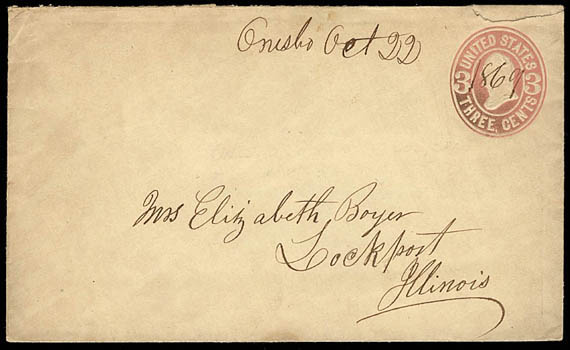 Onesbo Oct 22
UNITED STATES
3 1869 3
THREE CENTS
Mrs Elizabeth Boyer
Lockport
Illinois